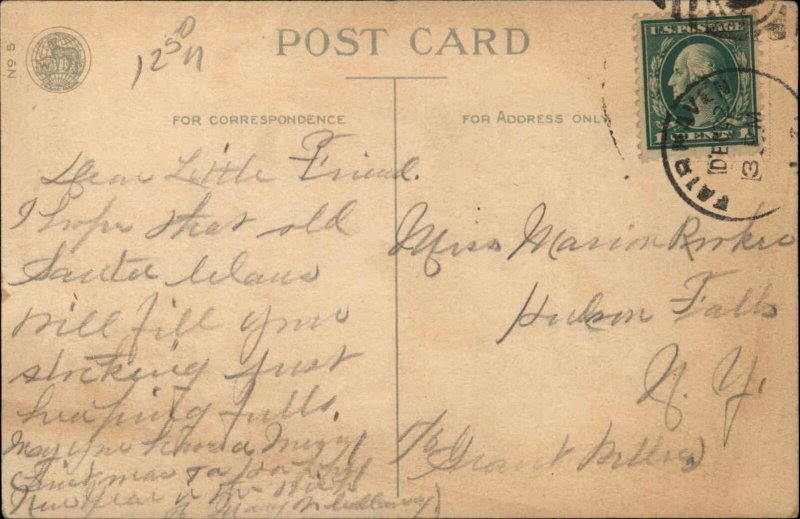 No 5
POST CARD
FOR CORRESPONDENCE
FOR ADDRESS ONLY
U.S. POSTAGE
1 CENT 1
FAIR HAVEN
DEC
Dear Little Friend.
I hope that old
Santa Claus
will fill your
stocking just
heaping fulls.
May you have a Merry
New Year
Mary
Miss Marion
Hudson Falls
N. Y.
Grant